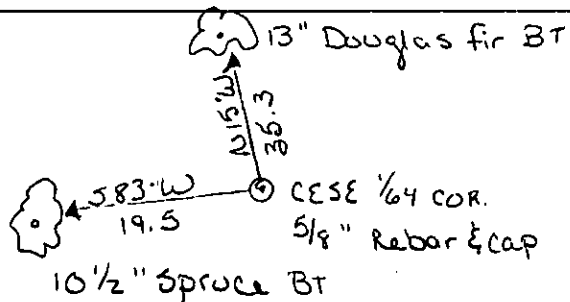 13" Douglas fir BT
N15°W
35.3
S83°W
19.5
CESE 1/64 COR.
5/8" Rebar & cap
10 1/2" Spruce BT